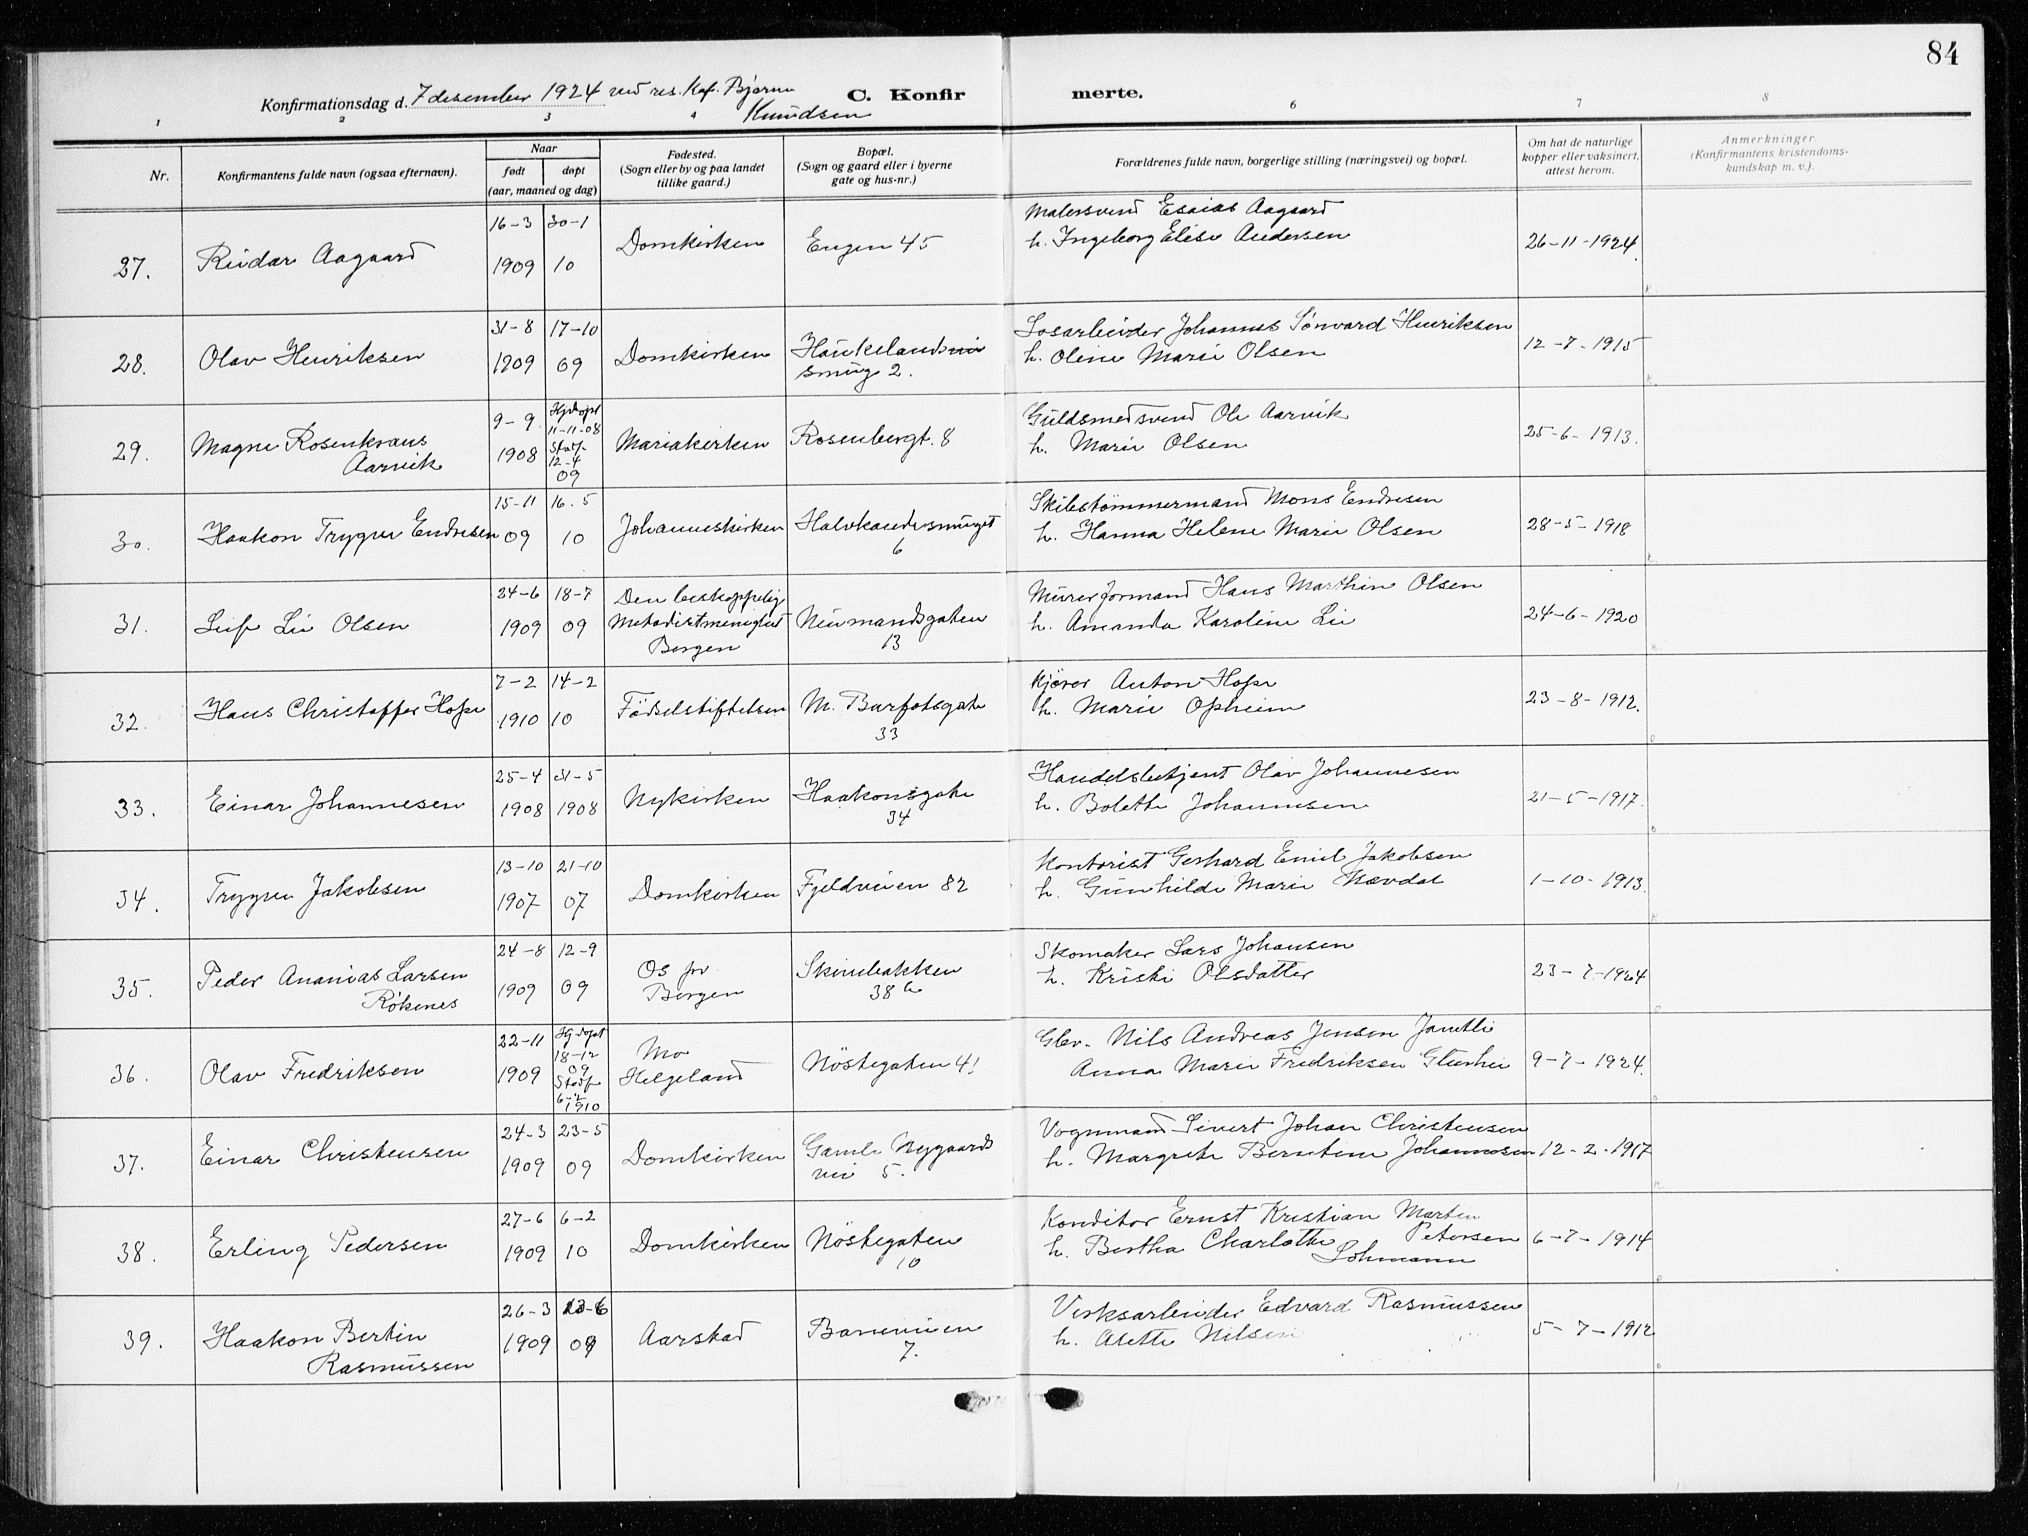 84
Konfirmationsdag d. 7 desember 1924 ved res. Kap. Bjarne Knudsen
C. Konfir merte.
1 2 3 4 6 7 8
Nr.
Konfirmantens fulde navn (ogsaa efternavn).
Naar
født døpt
(aar, maaned og dag)
Fødested.
(Sogn eller by og paa landet
tillike gaard.)
Bopæl.
(Sogn og gaard eller i byerne
gate og hus-nr.)
Forældrenes fulde navn, borgerlige stilling (næringsvei) og bopæl.
Om hat de naturlige
kopper eller vaksinert,
attest herom.
Anmerkninger.
(Konfirmantens kristendoms-
kundskap m. v.).
27. Reidar Aagaard 16-3 1909 30-1 10 Domkirken Engen 45
Malersvend Esaias Aagaard
h. Ingeborg Elise Andersen 26-11-1924
28. Olav Henriksen 31-8 1909 17-10 09 Domkirken Haukelands
smug 2.
Løsarbeider Johannes Sønvard Henriksen
h. Oline Marie Olsen 12-7-1915
29. Magne Rosenkrans
Aarvik 9-9 1908 Hjdøpt
11-11-08
Stadf.
12-4
09 Mariakirken Rosenbergt. 8
Guldsmedsvend Ole Aarvik
h. Marie Olsen 25-6-1913.
30. Haakon Trygve Endresen 15-11 09 16-5 10 Johanneskirken Halvkandesmuget
6
Skibstømmermand Mons Endresen
h. Hanna Helene Marie Olsen 28-5-1918
31. Leif Lie Olsen 24-6 1909 18-7 09 Den biskoppelig
Metodistmenighet
Bergen Neumandsgaten
13
Murerformand Hans Marthin Olsen
h. Amanda Karoline Lie 24-6-1920
32. Hans Christoffer Hope 7-2 1910 14-2 10 Fødselstiftelsen M. Barfotsgate
33
Kjører Anton Hope
h. Marie Opheim 23-8-1912.
33. Einar Johannesen 25-4 1908 31-5 1908 Nykirken Haakonsgate
34
Handelsbetjent Olav Johannesen
h. Bolette Johannesen 21-5-1917.
34. Trygve Jakobsen 13-10 1907 21-10 07 Domkirken Fjeldveien 82
Kontorist Gerhard Emil Jakobsen
h. Gunhilde Marie 1-10-1913.
35. Peder Ananias Larsen
Røkenes 24-8 1909 12-9 09 Os pr.
Bergen Skivebakken
38 b
Skomaker Lars Johansen
h. Kristi Olsdatter 23-7-1924
36. Olav Fredriksen 22-11 1909 Hjdøpt
18-12
09
Stadf
1910 Mo
Helgeland Nøstegaten 41
Nils Andreas Jensen
Anna Marie Fredriksen 9-7-1924.
37. Einar Christensen 24-3 1909 23-5 09 Domkirken Gamle Nygaards
vei 5.
Vognmand Sivert Johan Christensen
h. Margrete Berntine Johannesen 12-2-1917
38. Erling Pedersen 27-6 1909 6-2 10 Domkirken Nøstegaten
10
Konditor Ernst Kristian Martin
Petersen
h. Bertha Charlotte Lohmann 6-7-1914
39. Haakon Bertin
Rasmussen 26-3 1909 09 Aarstad Baneveien
7.
Verksarbeider Edvard Rasmussen
h. Alette Nilsen 5-7-1912